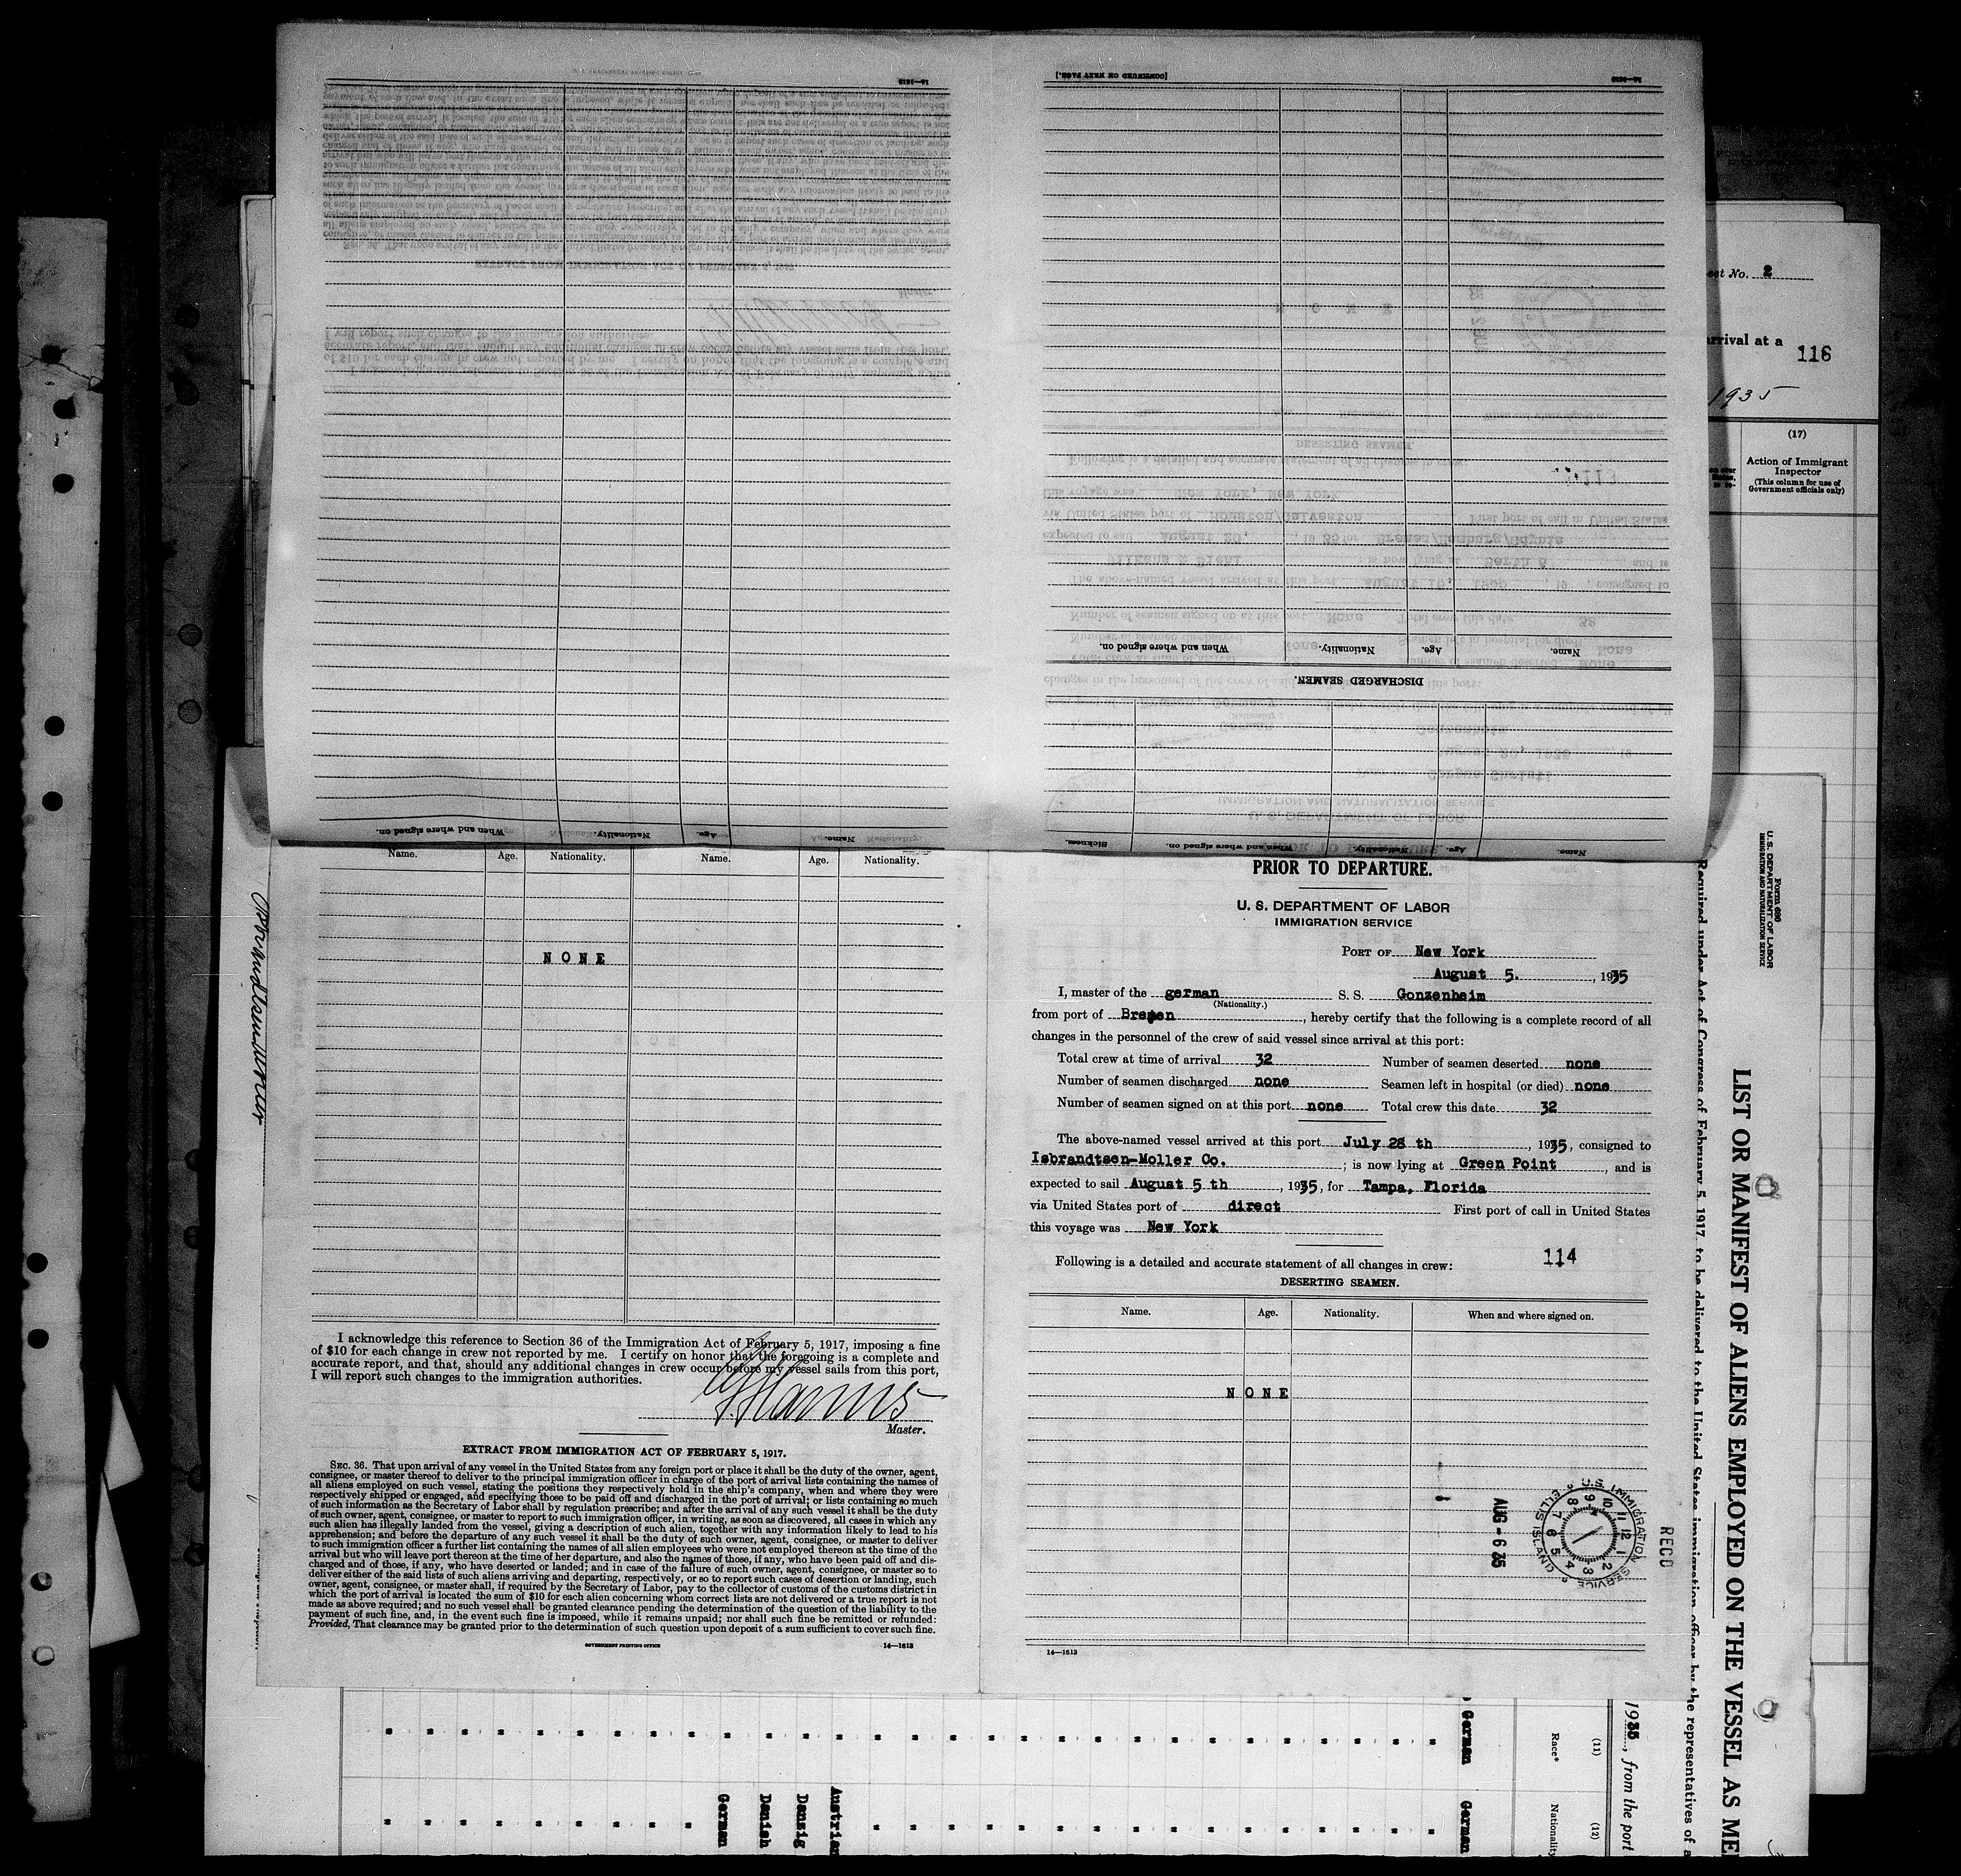 [CONTINUED ON NEXT PAGE.]
When and where signed on. Nationality. Age. Name.
DISCHARGED SEAMEN.
Sheet No. 2
arrival at a 116
1935
(17)
Action of Immigrant
Inspector
(This column for use of
Government officials only)
When and where signed on. Nationality. Age. Name.
Sickness. When and where signed on. Nationality. Age. Name.
Name. Age. Nationality. Name. Age. Nationality.
NONE
I acknowledge this reference to Section 36 of the Immigration Act of February 5, 1917, imposing a fine
of $10 for each change in crew not reported by me. I certify on honor that the foregoing is a complete and
accurate report, and that, should any additional changes in crew occur before my vessel sails from this port,
I will report such changes to the immigration authorities.
Master.
EXTRACT FROM IMMIGRATION ACT OF FEBRUARY 5, 1917.
SEC. 36. That upon arrival of any vessel in the United States from any foreign port or place it shall be the duty of the owner, agent,
consignee, or master thereof to deliver to the principal immigration officer in charge of the port of arrival lists containing the names of
all aliens employed on such vessel, stating the positions they respectively hold in the ship's company, when and where they were
respectively shipped or engaged, and specifying those to be paid off and discharged in the port of arrival; or lists containing so much
of such information as the Secretary of Labor shall by regulation prescribe; and after the arrival of any such vessel it shall be the duty
of such owner, agent, consignee, or master to report to such immigration officer, in writing, as soon as discovered, all cases in which any
such alien has illegally landed from the vessel, giving a description of such alien, together with any information likely to lead to his
apprehension; and before the departure of any such vessel it shall be the duty of such owner, agent, consignee, or master to deliver
to such immigration officer a further list containing the names of all alien employees who were not employed thereon at the time of the
arrival but who will leave port thereon at the time of her departure, and also the names of those, if any, who have been paid off and dis-
charged and of those, if any, who have deserted or landed; and in case of the failure of such owner, agent, consignee, or master so to
deliver either of the said lists of such aliens arriving and departing, respectively, or so to report such cases of desertion or landing, such
owner, agent, consignee, or master shall, if required by the Secretary of Labor, pay to the collector of customs of the customs district in
which the port of arrival is located the sum of $10 for each alien concerning whom correct lists are not delivered or a true report is not
made as above required; and no such vessel shall be granted clearance pending the determination of the question of the liability to the
payment of such fine, and, in the event such fine is imposed, while it remains unpaid; nor shall such fine be remitted or refunded:
Provided, That clearance may be granted prior to the determination of such question upon deposit of a sum sufficient to cover such fine.
GOVERNMENT PRINTING OFFICE 14—1613
PRIOR TO DEPARTURE.
U. S. DEPARTMENT OF LABOR
IMMIGRATION SERVICE
PORT OF New York
August 5. , 1935
I, master of the german S. S. Gonzenheim
(Nationality.)
from port of Bremen , hereby certify that the following is a complete record of all
changes in the personnel of the crew of said vessel since arrival at this port:
Total crew at time of arrival 32 Number of seamen deserted none
Number of seamen discharged none Seamen left in hospital (or died) none
Number of seamen signed on at this port none Total crew this date 32
The above-named vessel arrived at this port July 28 th , 1935, consigned to
Isbrandtsen-Moller Co. ; is now lying at Green Point , and is
expected to sail August 5 th , 1935, for Tampa, Florida
via United States port of direct First port of call in United States
this voyage was New York
114
Following is a detailed and accurate statement of all changes in crew:
DESERTING SEAMEN.
Name. Age. Nationality. When and where signed on.
NONE
AUG - 6 35
U.S. IMMIGRATION SERVICE ELLIS ISLAND
RECD
14—1613
Form 680
U. S. DEPARTMENT OF LABOR
IMMIGRATION AND NATURALIZATION SERVICE
LIST OR MANIFEST OF ALIENS EMPLOYED ON THE VESSEL AS ME
Required under Act of Congress of February 5, 1917, to be delivered to the United States immigration officer by the representatives of a
1935, from the port
(11)
Race*
German
(12)
Nationality
German
Austrian
Danzig
Danish
German